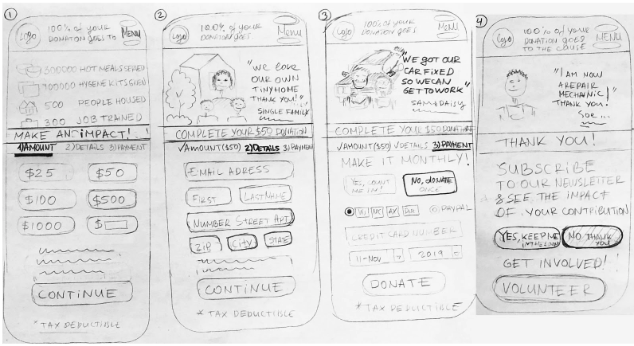 1
Logo
100% of your
DONATION GOES TO
MENU
300000 HOT MEALS SERVED
100000 HYGENE KITS GIVEN
500 PEOPLE HOUSED
300 JOB TRAINED
MAKE AN IMPACT!
1) AMOUNT 2) DETAILS 3) PAYMENT
$25 $50
$100 $500
$1000 $
CONTINUE
*TAX DEDUCTIBLE
2
Logo
100% of your
DONATION GOES
MENU
"WE LOVE
OUR OWN
TINY HOME
THANK YOU!"
SINGLE FAMILY
COMPLETE YOUR $50 DONATION
√AMOUNT($50) 2)DETAILS 3)PAYMENT
EMAIL ADRESS
FIRST LAST NAME
NUMBER STREET APT
ZIP CITY STATE
CONTINUE
*TAX DEDUCTIBLE
3
Logo
100% of your
DONATION GOES
MENU
"WE GOT OUR
CAR FIXED
SO WE CAN
GET TO WORK"
SAM & DAISY
COMPLETE YOUR $50 DONATION
√AMOUNT($50) √DETAILS 3)PAYMENT
MAKE IT MONTHLY!
YES, COUNT
ME IN! NO, DONATE
ONCE
VI MC AX PAYPAL
CREDIT CARD NUMBER
11-NOV 2019
DONATE
*TAX DEDUCTIBLE
4
Logo
100% of your
DONATION GOES
TO THE CAUSE
MENU
"I AM NOW
A REPAIR
MECHANIC!
THANK YOU."
JOE
THANK YOU!
SUBSCRIBE
TO OUR NEWSLETTER
& SEE THE IMPACT
OF YOUR CONTRIBUTION
YES, KEEP ME NO THANK
YOU
GET INVOLVED!
VOLUNTEER